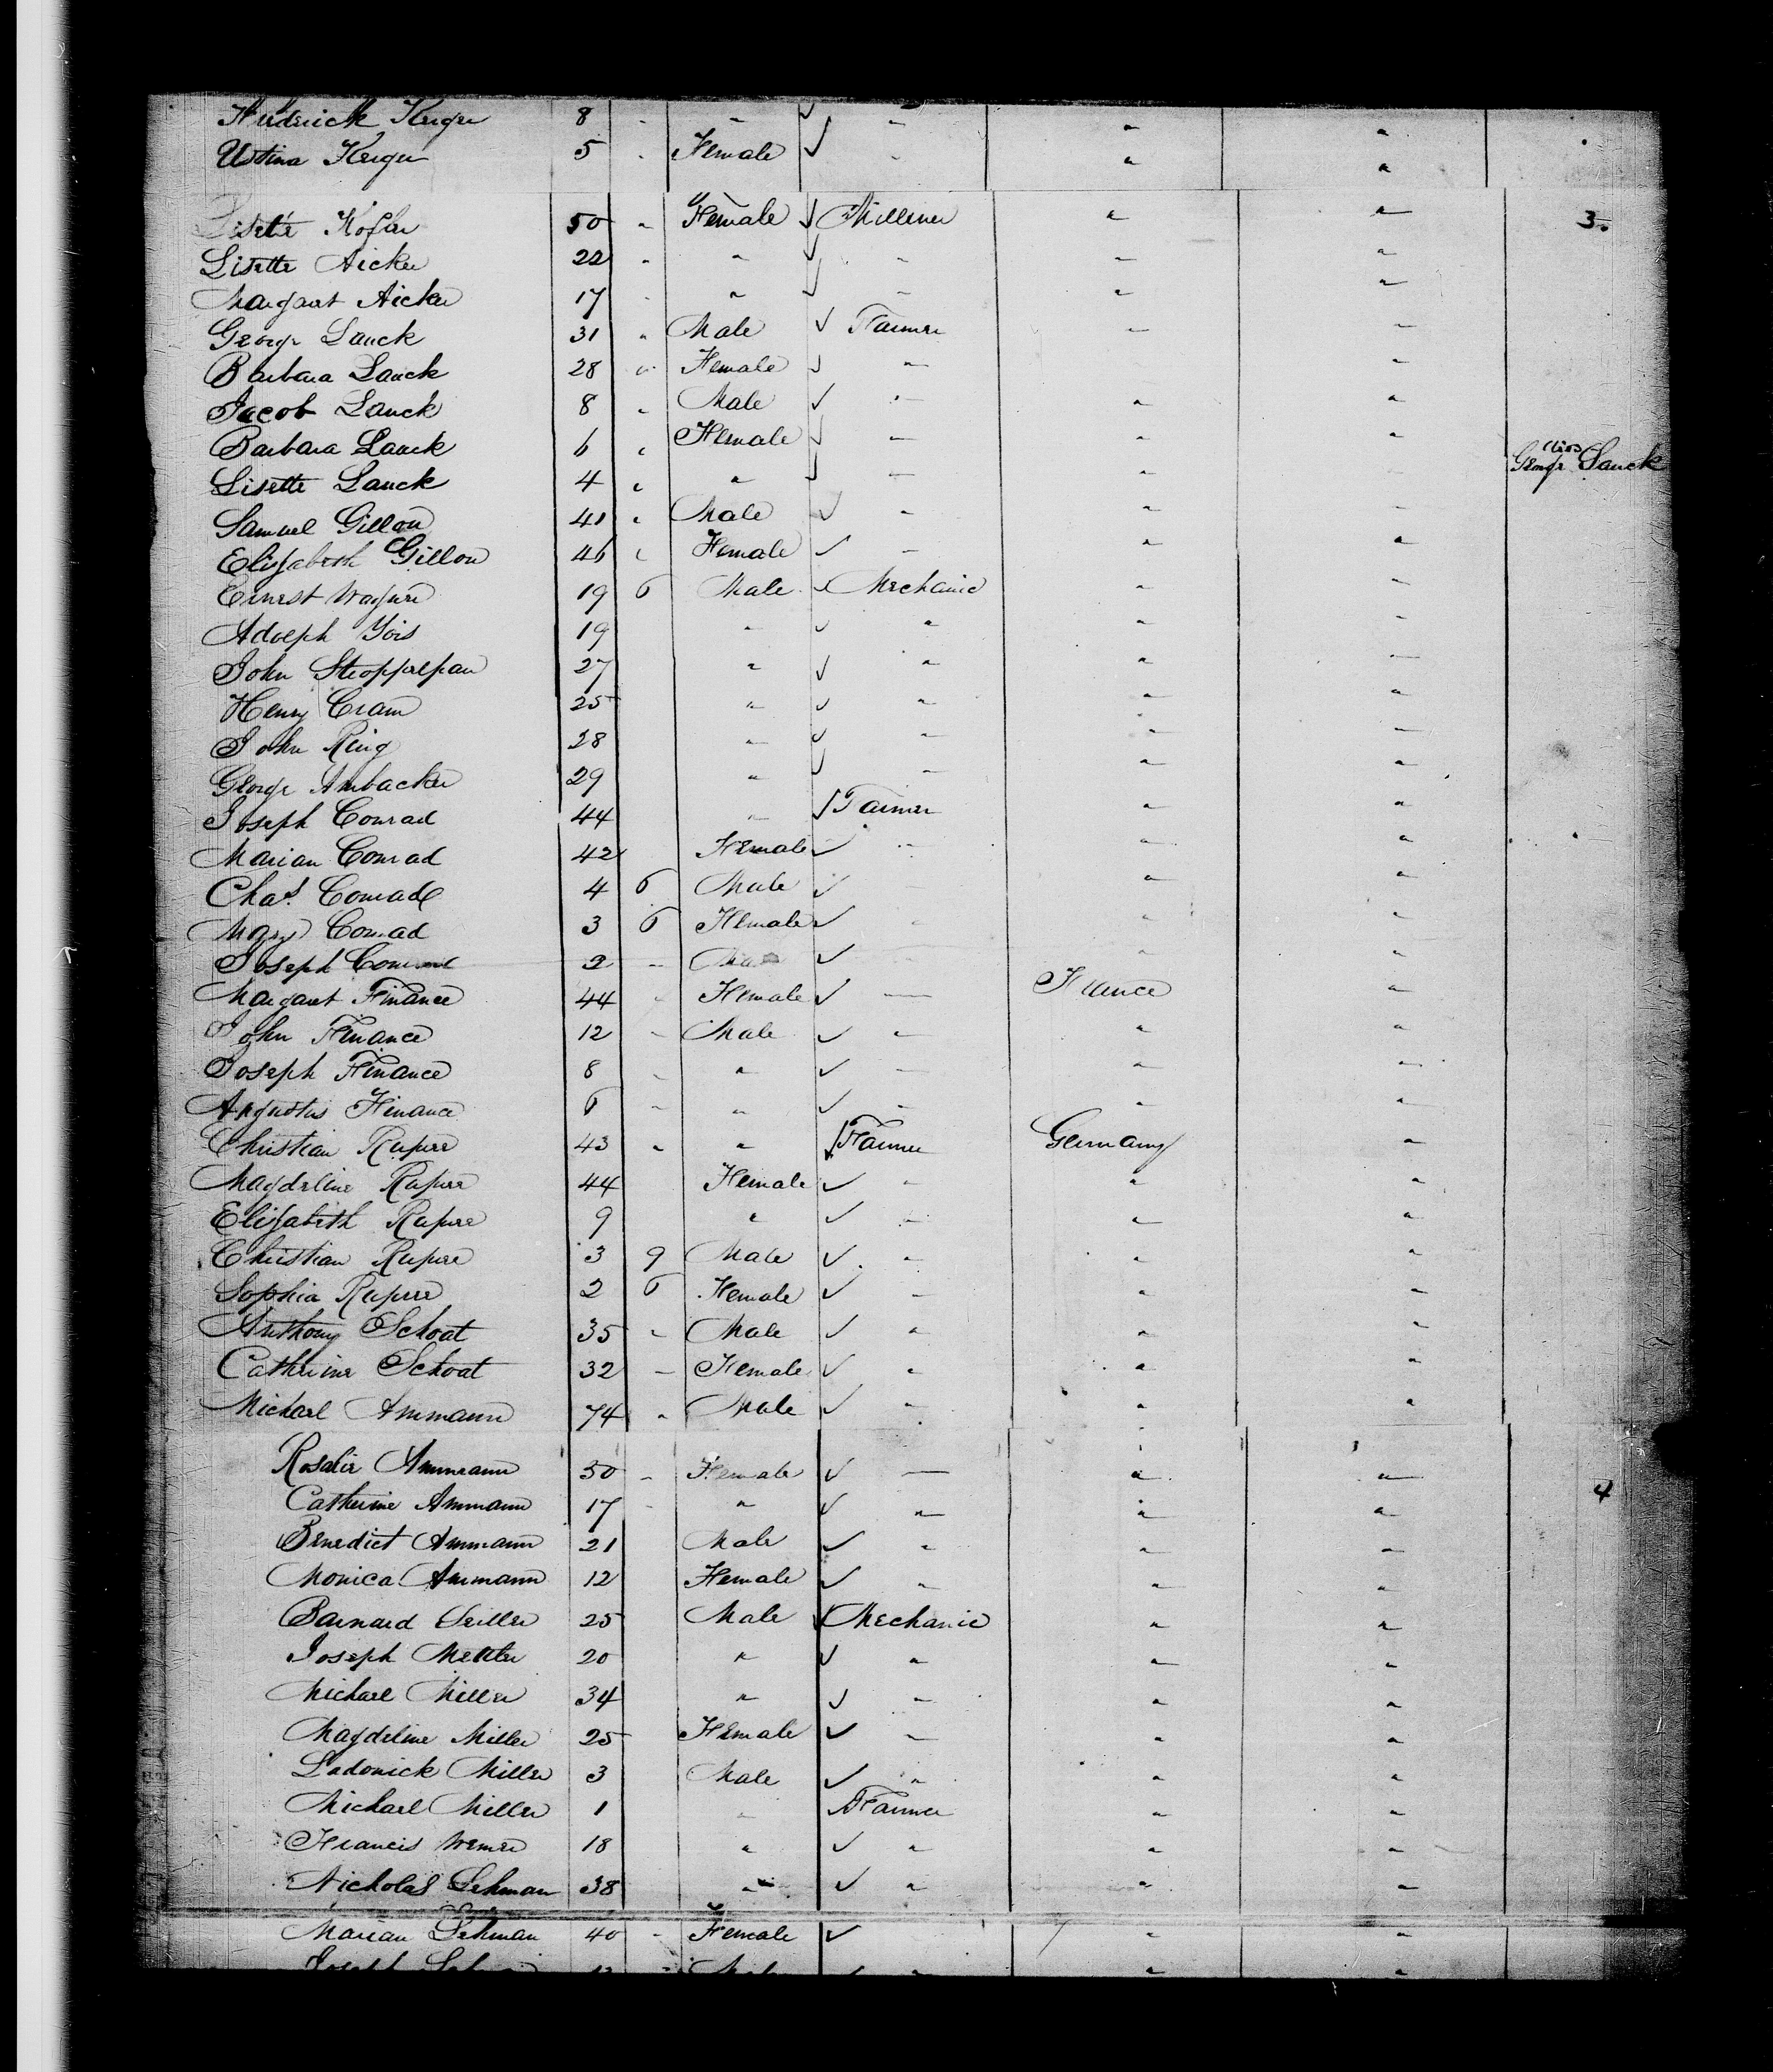 Frederick Kerger 8 " " ✓ " " "
Ustina Kerger 5 " Female ✓ " " "
Lisette Kofler 50 " Female ✓ Milliner " " 3.
Lisette Aicker 22 " " ✓ " " "
Margaret Aicker 17 " " ✓ " " "
George Lauck 31 " Male ✓ Farmer " "
Barbara Lauck 28 " Female ✓ " "
Jacob Lauck 8 " Male ✓ " " "
Barbara Lauck 6 " Female ✓ " " "
George Lauck
Lisette Lauck 4 " " ✓ " "
Samuel Gillon 41 " Male ✓ " " "
Elizabeth Gillon 46 " Female ✓ " " "
Ernest Wagner 19 6 Male ✓ Mechanic " "
Adolph Yois 19 " ✓ " " "
John Stoppelpan 27 " ✓ " " "
Henry Cram 25 " ✓ " " "
John Ring 28 " ✓ " " "
George Ambacker 29 " ✓ " " "
Joseph Conrad 44 " ✓ Farmer " "
Marian Conrad 42 Female ✓ " " "
Chas. Conrad 4 6 Male ✓ " "
Mary Conrad 3 6 Female ✓ " " "
Joseph Conrad 2 " Male ✓ " " "
Margaret Finance 44 " Female ✓ " France "
John Finance 12 " Male ✓ " " "
Joseph Finance 8 " " ✓ " " "
Augustus Finance 6 " " ✓ " " "
Christian Rupere 43 " " ✓ Farmer Germany "
Magdeline Rupere 44 Female ✓ " " "
Elizabeth Rupere 9 " ✓ " " "
Christian Rupere 3 9 Male ✓ " " "
Sophia Rupere 2 6 Female ✓ " " "
Anthony Schoat 35 " Male ✓ " " "
Catherine Schoat 32 " Female ✓ " " "
Michael Ammann 74 " Male ✓ " " "
Rosalie Ammann 50 " Female ✓ " " "
Catherine Ammann 17 " " ✓ " " " 4
Benedict Ammann 21 Male ✓ " " "
Monica Ammann 12 Female ✓ " " "
Barnard Seiller 25 Male ✓ Mechanic " "
Joseph Mettler 20 " ✓ " " "
Michael Miller 34 " ✓ " " "
Magdeline Miller 25 Female ✓ " " "
Ladowick Miller 3 Male ✓ " " "
Michael Miller 1 " ✓ Farmer " "
Francis Wemer 18 " ✓ " " "
Nicholas Lehman 38 " ✓ " " "
Marian Lehman 40 " Female ✓ " "
Joseph